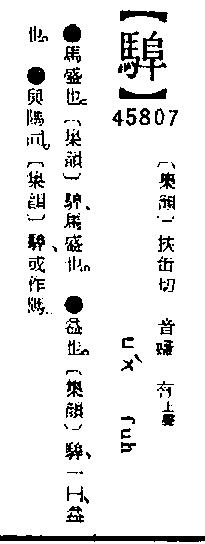 【】
45807
〔集韻〕扶缶切 音婦 有上聲
ㄈㄨˋ fuh
●馬盛也。〔集韻〕、馬盛也。●益也。〔集韻〕、一曰、益
也。●與同。〔集韻〕、或作。